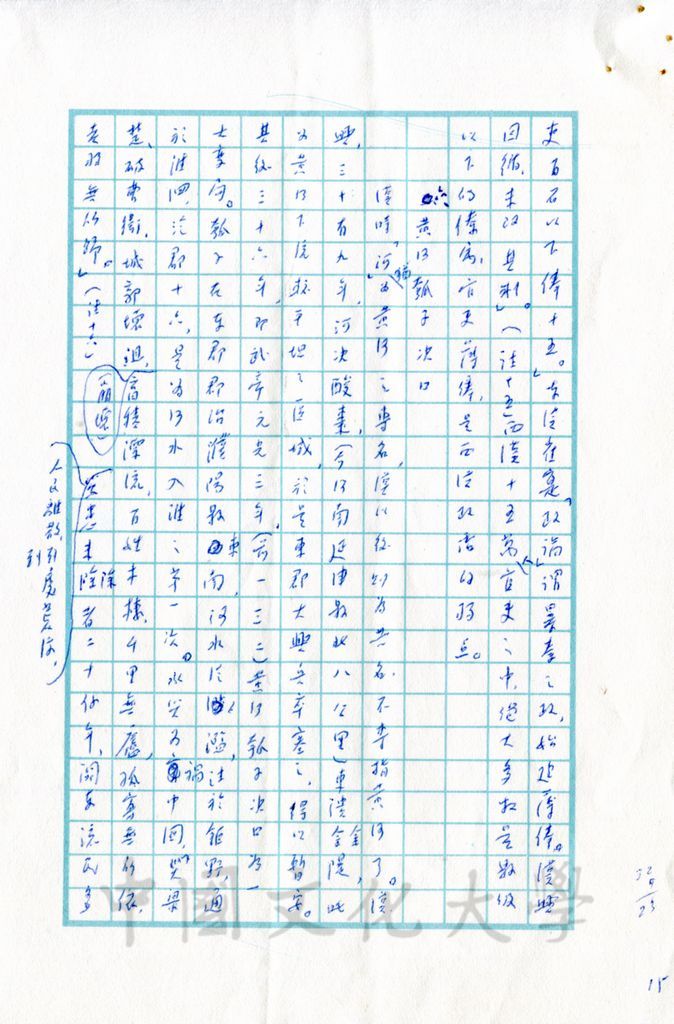 吏百石以下俸十五。」東漢崔寔「政論」謂暴秦之政,始建薄俸。漢興
因循,未改其制。」(註十五)西漢十五萬官吏之中,絕大多數是數級
以下的僚屬,官吏薄俸,是西漢政治的弱點。
六、黃河瓠子決口
漢時「河」猶為黃河之專名,漢以後則為共名,不專指黃河了。漢
興,三十有九年,河決酸棗,(今河南延津縣北八公里)東潰金隄,此
為黃河下流較平坦之區域,於是東郡大興兵卒塞之,得以暫安。
其後三十六年,即武帝元光三年,(前一三二)黃河瓠子決口為一
大事向。瓠子在東郡郡治濮陽縣東南,河水氾濫,注於鉅野通
於淮泗,氾郡十六,是為河水入淮之第一次。水災為禍中國,「哭梁
楚,破曹衛,城郭壞沮,蓄積漂流,百姓木棲,千里無廬,孤寡無所依,
老弱無所歸。」(註十六)災患未除者二十餘年,關東流民多
人民離散,到處荒涼,
中國文化大學
15